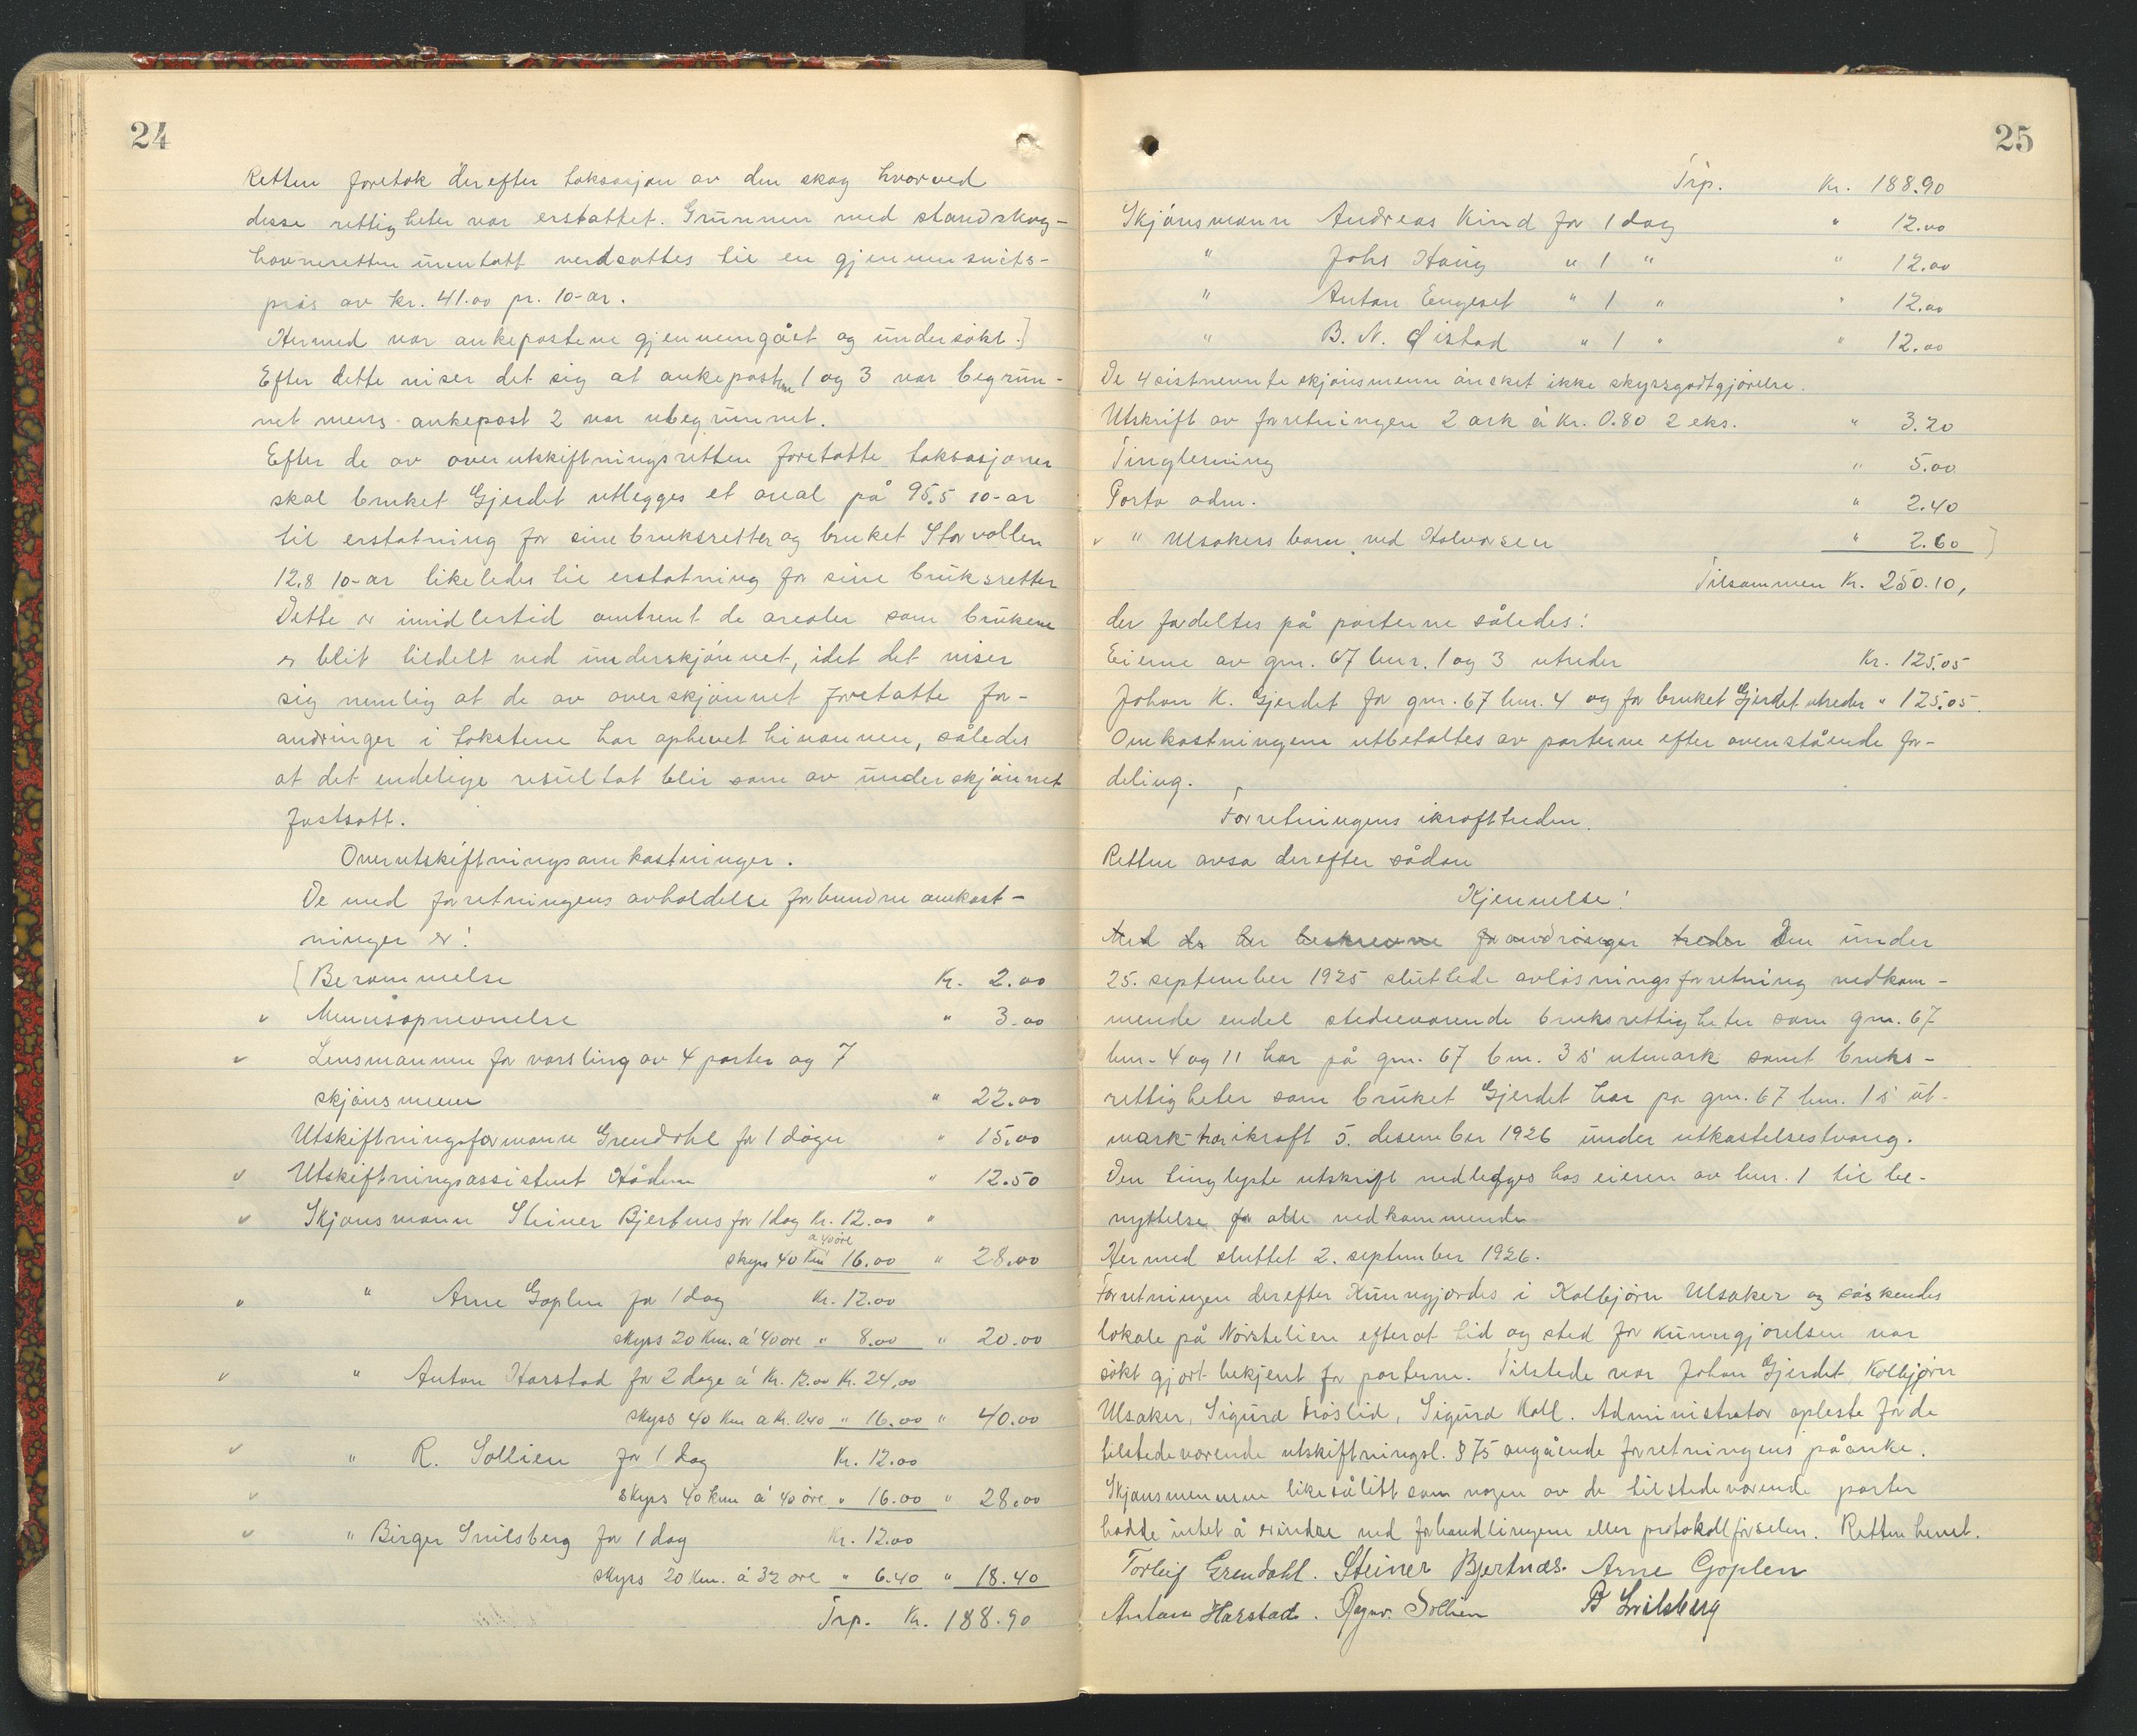 24
Retten foretok derefter taksasjon av den skog hvorved
disse rettigheter var erstattet. Grunnen med standskog-
havneretten unntatt verdsattes til en gjennemsnits-
pris av kr. 41.00 pr. 10-ar.
Hermed var ankepostene gjennemgået og undersökt.]
Efter dette viser det sig at ankepostene 1 og 3 var begrun-
net mens ankepost 2 var ubegrunnet.
Efter de av overutskiftningsretten foretatte taksasjoner
skal bruket Gjerdet utlegges et areal på 95,5 10-ar
til erstatning for sine bruksretter og bruket Storvollen
12,8 10-ar likeledes til erstatning for sine bruksretter
Dette er imidlertid omtrent de arealer som brukene
er blit tildelt ved underskjönnet, idet det viser
sig nemlig at de av overskjönnet foretatte for-
andringer i takstene har ophevet hinannen, således
at det endelige resultat blir som av underskjönnet
fastsatt.
Overutskiftningsomkostninger.
De med forretningens avholdelse forbundne omkost-
ninger er:
[Berammelse Kr. 2.00
v Mennsopnevnelse " 3.00
v Lensmannen for varsling av 4 parter og 7
skjönsmenn " 22.00
Utskiftningsformann Grendahl for 1 döger " 15.00
v Utskiftningsassistent Hådem " 12.50
v Skjönsmann Steiner Bjertnes for 1 dag Kr. 12.00 "
skyss 40 Km a 40 öre 16.00 " 28.00
v " Arne Goplen for 1 dag Kr. 12.00
skyss 20 Km. á 40 öre " 8.00 " 20.00
v " Anton Harstad for 2 dage á Kr. 12.00 Kr. 24,00
skyss 40 Km a Kr. 0.40 " 16.00 " 40.00
v " R. Sollien for 1 dag Kr. 12.00
v skyss 40 km á 40 öre " 16.00 " 28.00
v " Birger Snilsberg for 1 dag Kr. 12.00
skyss 20 Km. á 32 öre " 6.40 " 18.40
Trp. Kr. 188.90
25
Trp. Kr. 188.90
Skjönsmann Andreas Kind for 1 dag " 12.00
" Johs Haug " 1 " " 12.00
" Anton Engeset " 1 " " 12.00
" B. N. Øistad " 1 " " 12.00
De 4 sistnevnte skjönsmenn önsket ikke skyssgodtgjörelse.
Utskrift av forretningen 2 ark á Kr. 0.80 2 eks. " 3.20
Tinglesning " 5.00
Porto adm. " 2.40
v " Ulsakers barn ved Halvorsen " 2.60 ]
Tilsammen Kr. 250.10,
der fordeltes på parterne således:
Eierne av gnr. 67 bnr. 1 og 3 utreder Kr. 125.05
Johan K. Gjerdet for gnr. 67 bnr. 4 og for bruket Gjerdet utreder " 125.05.
Omkostningene utbetaltes av parterne efter ovenstående for-
deling.
Forretningens ikrafttreden.
Retten avsa derefter sådan
Kjennelse:
Med de her beskrevne forandringer treder Den under
25. september 1925 sluttede avlösningsforretning vedkom-
mende endel stedsevarende bruksrettigheter som gnr. 67
bnr. 4 og 11 har på gnr. 67 bnr. 3 s' utmark samt bruks-
rettigheter som bruket Gjerdet har på gnr. 67 bnr. 1 s' ut-
mark trær ikraft 5. desember 1926 under utkastelsestvang.
Den tinglyste utskrift nedlegges hos eieren av bnr. 1 til be-
nyttelse for alle vedkommende
Hermed sluttet 2. september 1926.
Forretningen derefter Kunngjordes i Kolbjörn Ulsaker og söskendes
lokale på Nörstelien efterat tid og sted for kunngjörelsen var
sökt gjort bekjent for parterne. Tilstede var Johan Gjerdet, Kolbjörn
Ulsaker, Sigurd Tröslid, Sigurd Kall. Administrator opleste for de
tilstedeværende utskiftningsl. § 75 angående forretningens påanke.
Skjönsmennene likesålitt som nogen av de tilstedeværende parter
hadde intet å erindre ved forhandlingene eller protokollförselen. Retten hevet.
Torleif Grendahl. Steiner Bjertnæs. Arne Goplen
Anton Harstad. Ragnv. Sollien B Snilsberg